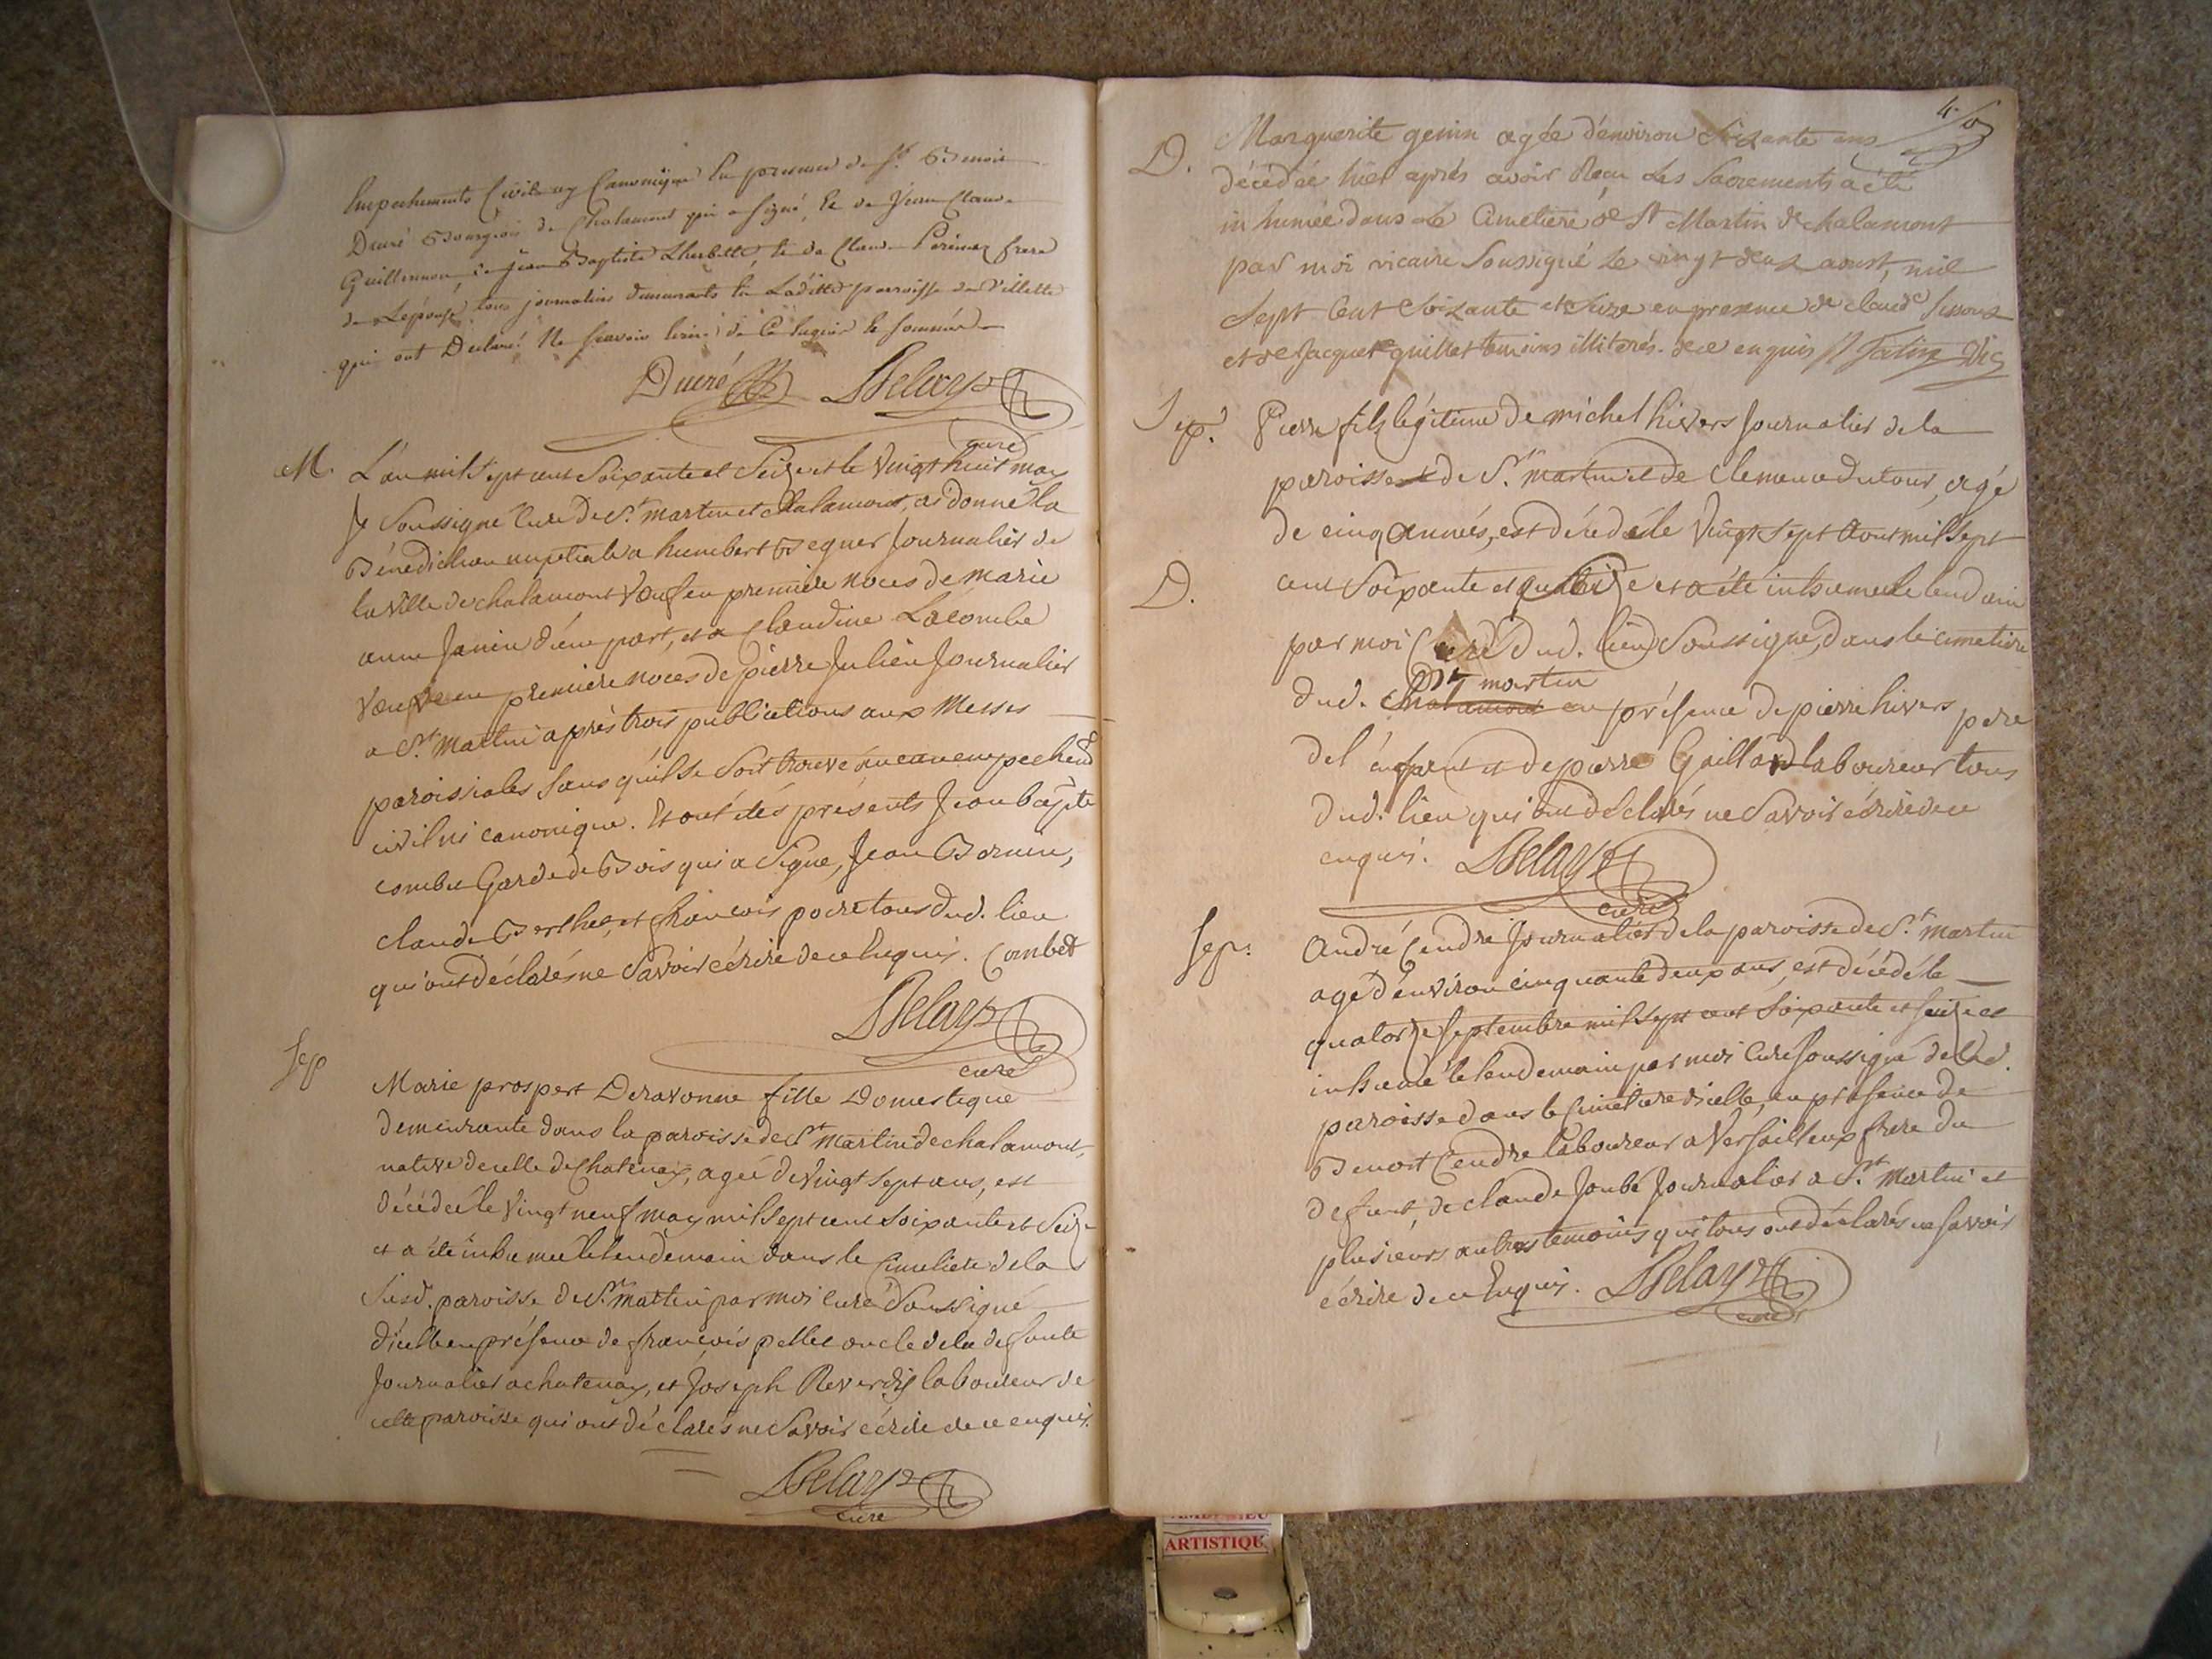 Empechements Civils ny Canonique En presence de Sr. Benoit
Ducré Bourgeois de Chalamont qui a signé, & de Jean Claude
Guillermon, de Jean Baptiste Lherbette, & de Claude frere
de Lépouse, tous journaliers demeurants en Laditte parroisse de Villette
qui ont Declaré Ne sçavoir de Ce Enquis &
Ducré Delarys
curé
M. L'an mil sept cent soixante et Seize et le Vingt huit may
Je soussigné Curé de St. martin et chalamont, ai donné la
Bénédiction nuptiale a humbert Beguer Journalier de
la Ville de chalamont Veuf en première noces de marie
anne Janin d'une part, et a Claudine Lacombe
Veufve en premiere noces de pierre Julien Journalier
a St. Martin après trois publications aux Messes
paroissiales sans qu'il se soit trouvé aucun empechemt
civil ni canonique. Et ont étés présents Jean bapte
combet Garde de Bois qui a Signé, Jean Bornin,
claude Berthet, et francois tous dud. lieu
qui ont déclarés ne Savoir écrire de ce Enquis. Combet
Delarys
curé
Sep Marie prospert Deravonne fille Domestique
demeurante dans la paroisse de St Martin de chalamont,
native de celle de Chatenay, agée de Vingt sept ans, est
décédée le Vingt neuf may mil sept cent soixante et Seize
et a été inhumée le lendemain dans le Cimetiere de la
susd. paroisse de St. Martin par moi Curé Soussigné
d'icelle en présence de françois pellet oncle de la defunte
Journalier a chatenay, et Joseph Reverdy laboureur de
cette paroisse qui ont déclarés ne Savoir écrire de ce enquis.
Delarys
curé
4.
D. Marguerite genin agée d'environ Soixante ans
décédée hier après avoir Reçu Les Sacrements a été
inhumée dans Le Cimetiere de St Martin de chalamont
par moi vicaire Soussigné Le vingt deux aoust, mil
Sept Cent Soixante et Seize en presence de claude
et de Jacque guillet temoins illiterés. de ce enquis Vic
Sep. Pierre fils légitime de michel hivers Journalier de la
paroisse de St. martin et de Clemence dutour, agé
de cinq années, est décédé le Vingt sept Aout mil sept
D. cent Soixante et Seize et a été inhumé le lendemain
par moi Curé Dud. lieu Soussigné, dans le cimetiere
St martin
dud. chalamont en présence de pierre hivers pere
de l'enfant et de pierre Gaillard laboureur tous
dud. lieu qui ont déclarés ne Savoir écrire de ce
enquis. Delarys
curé
Sep: André Cendre Journalier de la paroisse de St. martin
agé d'environ cinquante deux ans, est décédé le
quatorze septembre mil sept cent soixante et seize et
inhumé le lendemain par moi Curé soussigné de lad.
paroisse dans le Cimetiere d'icelle, en présence de
Benoit Cendre laboureur a Versailleux frere du
defunt, de claude Joubé Journalier a St. Martin et
plusieurs autres temoins qui tous ont déclarés ne savoir
écrire de ce Enquis. Delarys
curé
ARTISTIQU